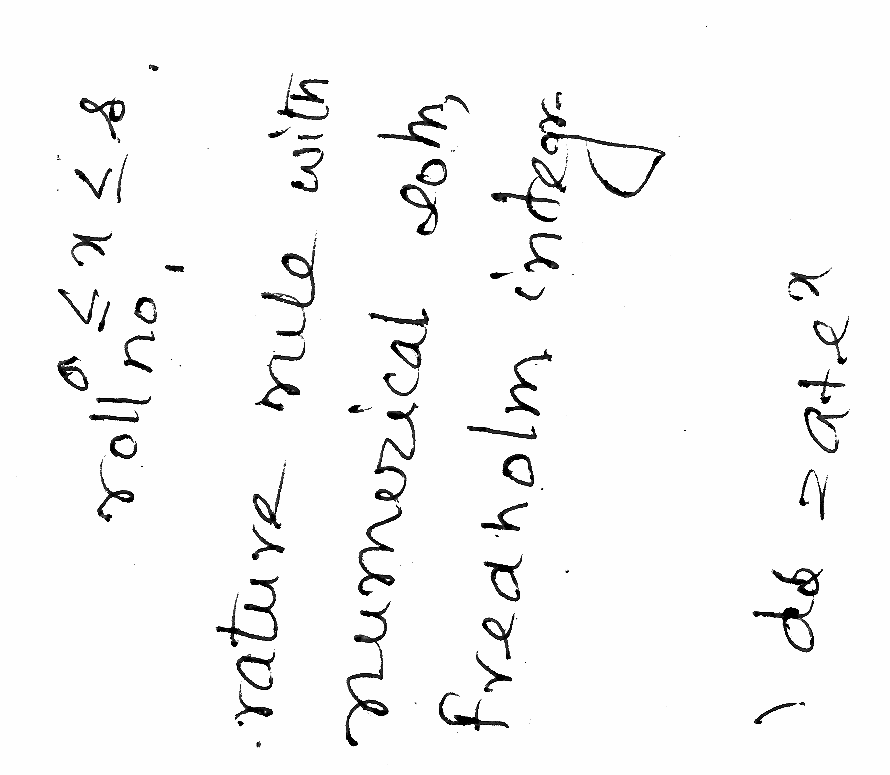 0 ≤ x ≤ 8.
roll no,
rature rule with
numerical soln,
fredholm integr-
) ds = a+e^x